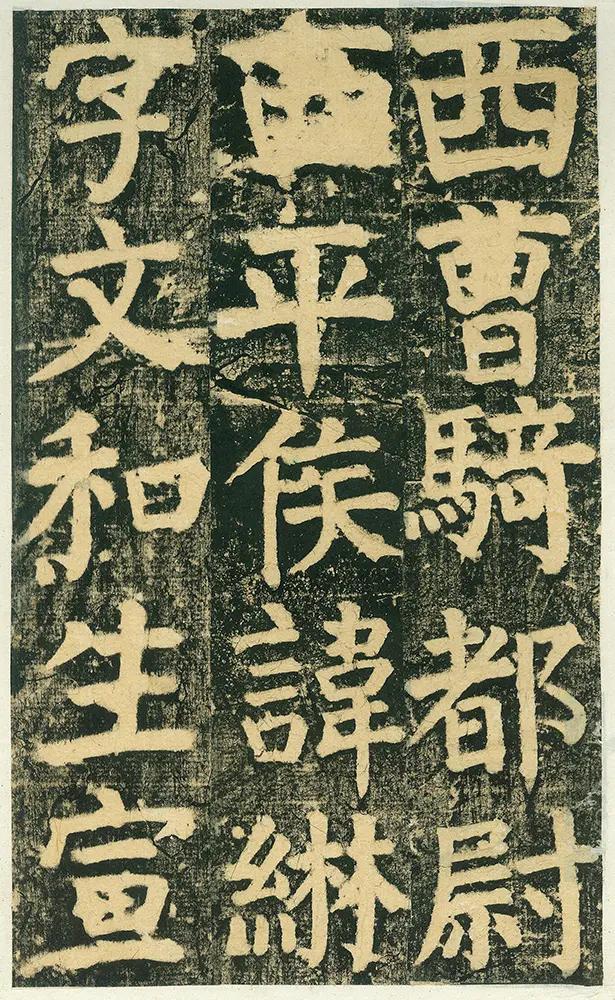 西曹騎都尉
西平侯諱綝
字文和生宣